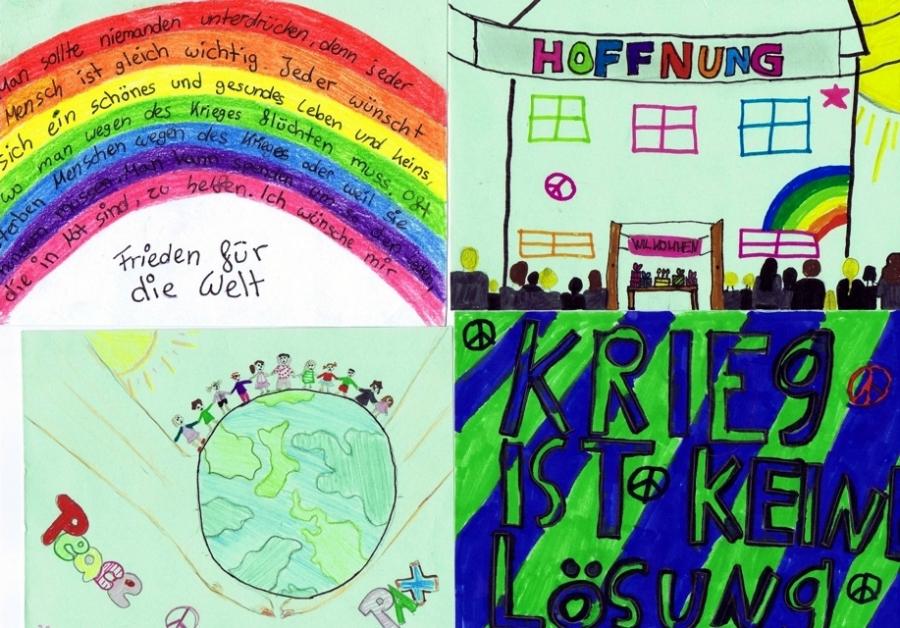 Man sollte niemanden unterdrücken, denn jeder
Mensch ist gleich wichtig. Jeder wünscht
sich ein schönes und gesundes Leben und keins,
wo man wegen des Krieges flüchten muss. Oft
sterben Menschen wegen des Krieges oder weil sie
müssen. Man kann spenden um
die in Not sind, zu helfen. Ich wünsche mir
Frieden für
die Welt
HOFFNUNG
WILKOMMEN
Peace
PAX
KRIEg
IST KEINE
LÖSUNg